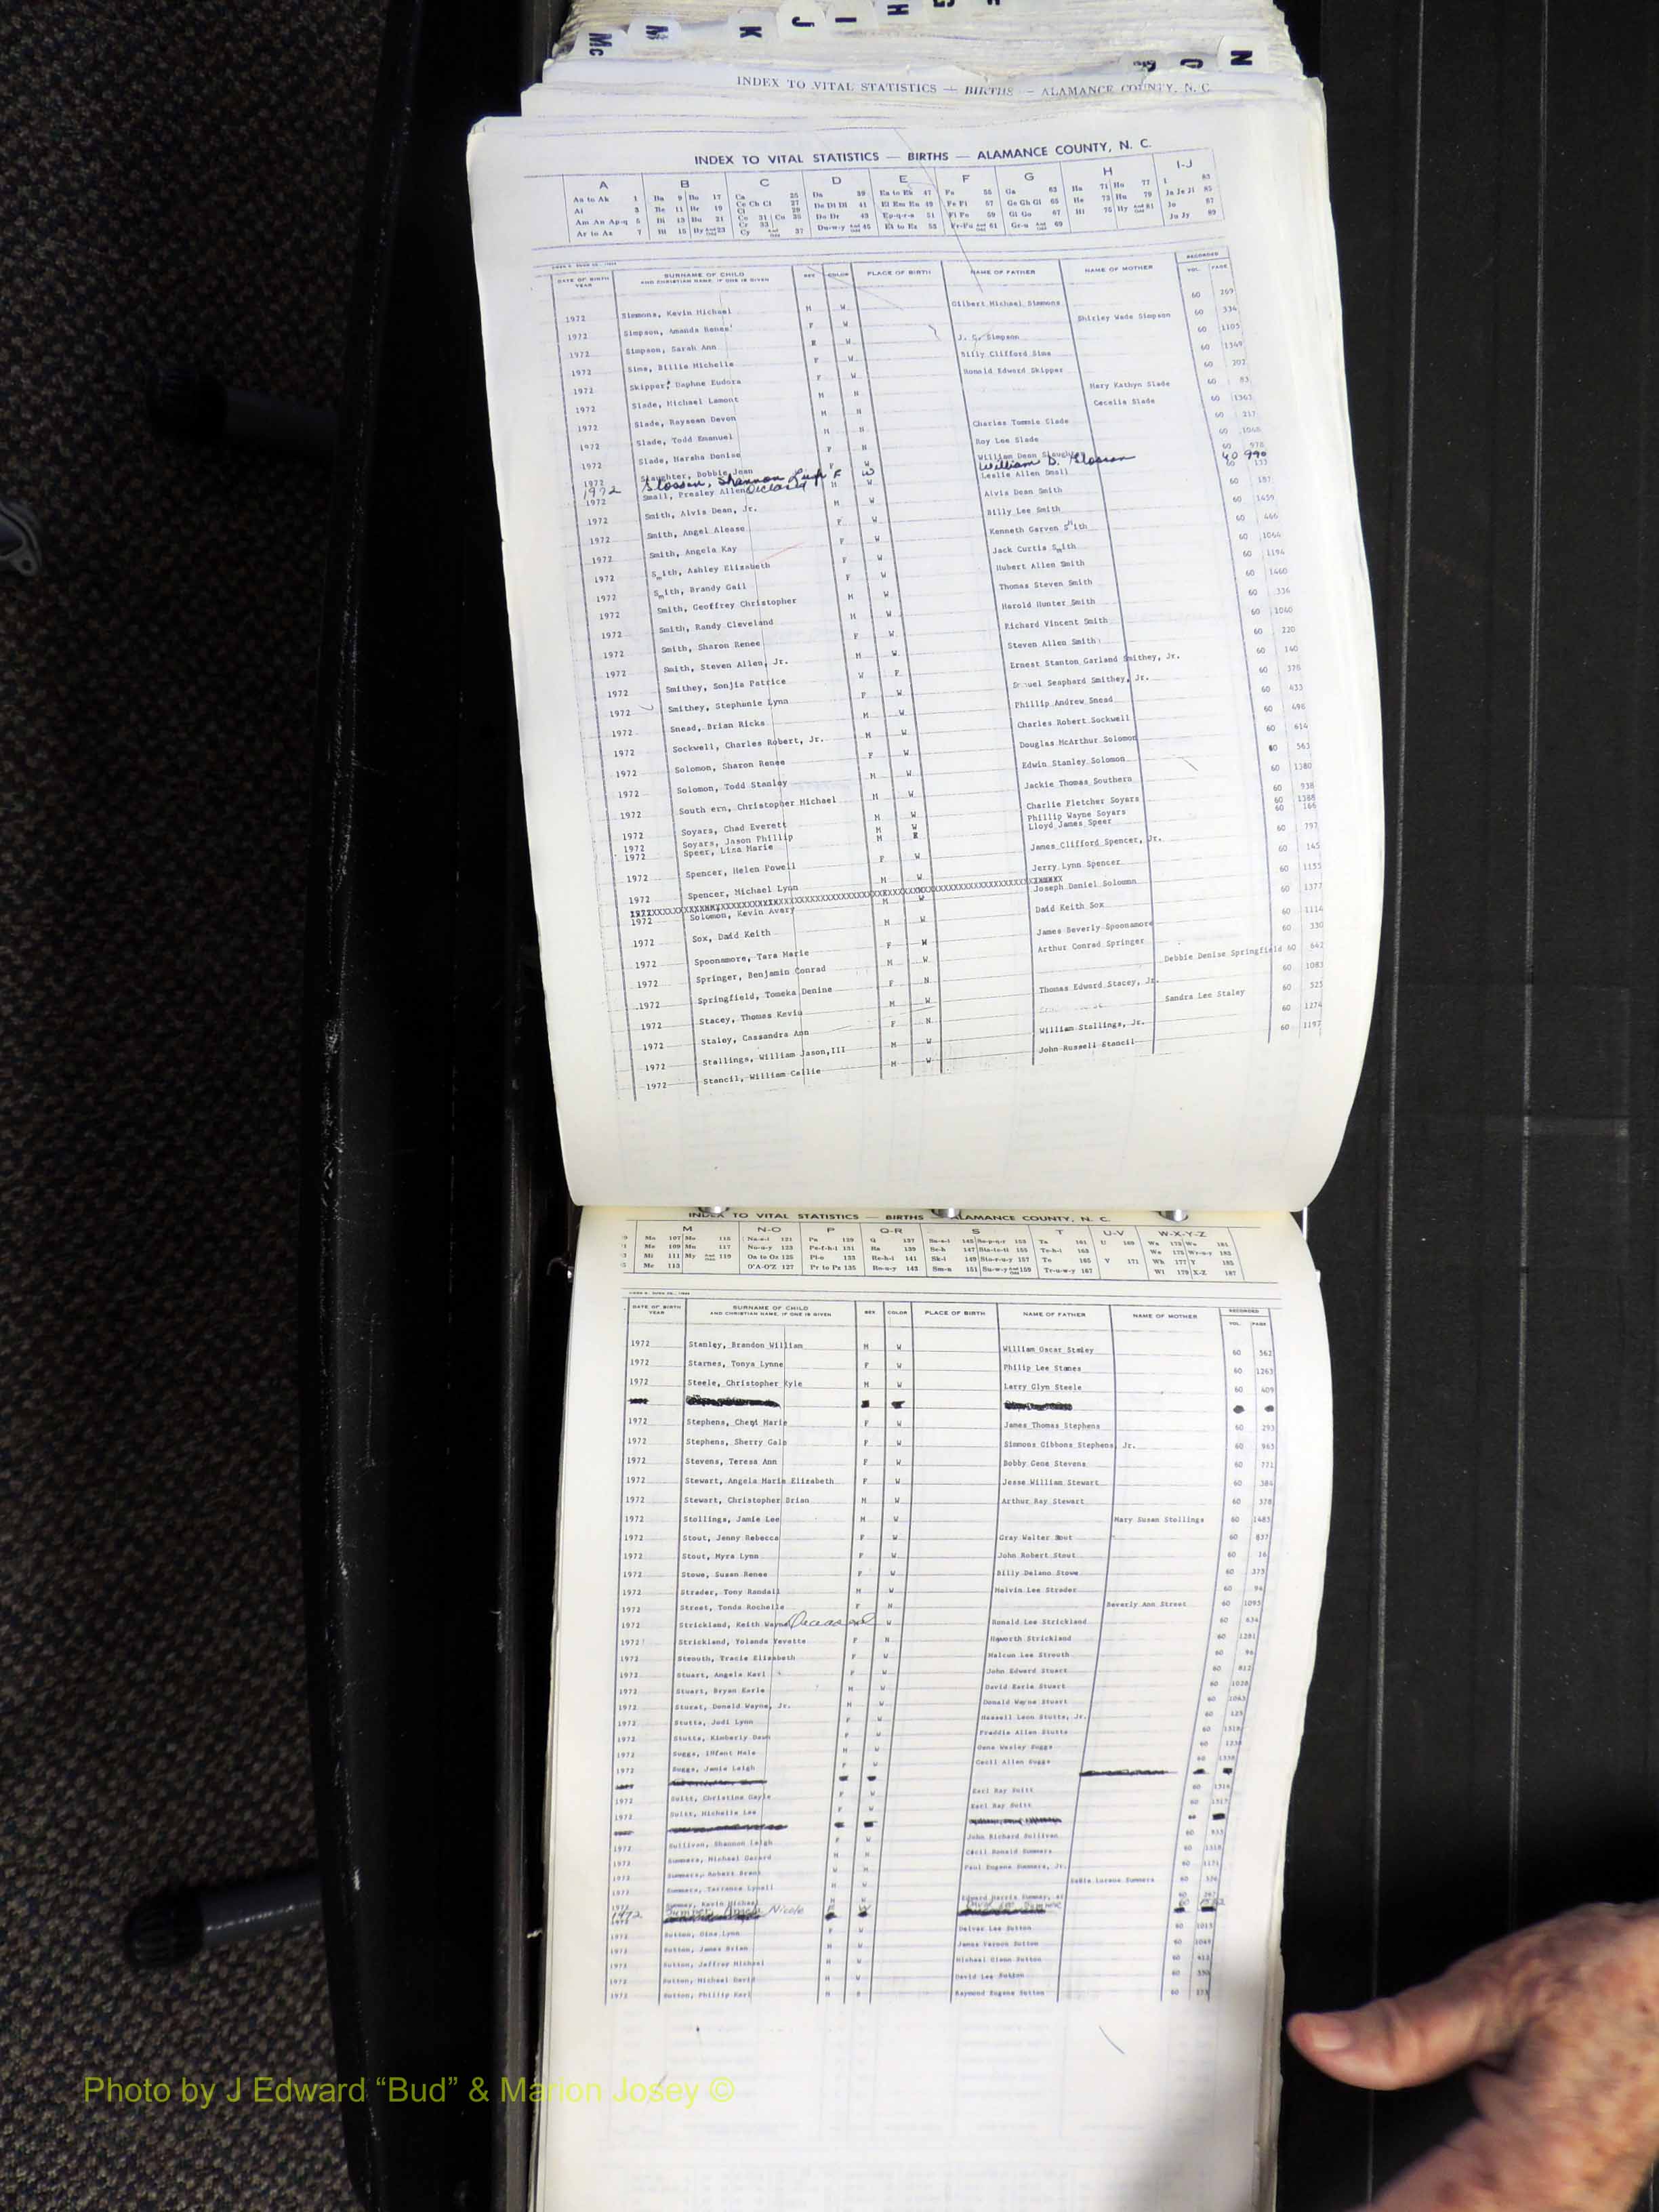 Mc M K J I H G
N
INDEX TO VITAL STATISTICS — BIRTHS — ALAMANCE COUNTY, N. C.
INDEX TO VITAL STATISTICS — BIRTHS — ALAMANCE COUNTY, N. C.
A B C D E F G H I-J
DATE OF BIRTH YEAR SURNAME OF CHILD AND CHRISTIAN NAME, IF ONE IS GIVEN SEX COLOR PLACE OF BIRTH NAME OF FATHER NAME OF MOTHER RECORDED VOL. PAGE
1972 Simmons, Kevin Michael M W Gilbert Michael Simmons 60 269
1972 Simpson, Amanda Renee' F W Shirley Wade Simpson 60 334
1972 Simpson, Sarah Ann W J. C. Simpson 60 1105
1972 Sims, Billie Michelle F W Billy Clifford Sims 60 1549
1972 Skipper, Daphne Eudora F W Ronald Edward Skipper 60 202
1972 Slade, Michael Lamont M N Mary Kathyn Slade 60 83
1972 Slade, Raysean Devon M N Cecelia Slade 60 1363
1972 Slade, Todd Emanuel M N Charles Tommie Slade 60 217
1972 Slade, Marsha Denise F N Roy Lee Slade 60 1068
1972 Slaughter, Bobbie Jean F W William Dean Slaughter 60 978
1972 Slosson, Shannon F W William D. Slosson 60 990
1972 Small, Presley Allen Deceased M W Leslie Allen Small 60 133
1972 Smith, Alvis Dean, Jr. M W Alvis Dean Smith 60 187
1972 Smith, Angel Alease F W Billy Lee Smith 60 1459
1972 Smith, Angela Kay F W Kenneth Garven Smith 60 466
1972 Smith, Ashley Elizabeth F W Jack Curtis Smith 60 1064
1972 Smith, Brandy Gail F W Hubert Allen Smith 60 1194
1972 Smith, Geoffrey Christopher M W Thomas Steven Smith 60 1460
1972 Smith, Randy Cleveland M W Harold Hunter Smith 60 336
1972 Smith, Sharon Renee F W Richard Vincent Smith 60 1040
1972 Smith, Steven Allen, Jr. M W Steven Allen Smith 60 220
1972 Smithey, Sonjia Patrice W F Ernest Stanton Garland Smithey, Jr. 60 140
1972 Smithey, Stephanie Lynn F W Seaphard Smithey, Jr. 60 378
1972 Snead, Brian Ricks M W Phillip Andrew Snead 60 433
1972 Sockwell, Charles Robert, Jr. M W Charles Robert Sockwell 60 498
1972 Solomon, Sharon Renee F W Douglas McArthur Solomon 60 614
1972 Solomon, Todd Stanley M W Edwin Stanley Solomon 60 563
1972 South ern, Christopher Michael M W Jackie Thomas Southern 60 1380
1972 Soyars, Chad Everett M W Charlie Fletcher Soyars 60 938
1972 Soyars, Jason Phillip M W Phillip Wayne Soyars 60 1388
1972 Speer, Lisa Marie M Lloyd James Speer 60 166
1972 Spencer, Helen Powell F W James Clifford Spencer, Jr. 60 797
1972 Spencer, Michael Lynn M W Jerry Lynn Spencer 60 145
1972 Solomon, Kevin Avary M W Joseph Daniel Solomon 60 1155
1972 Sox, David Keith M W David Keith Sox 60 1377
1972 Spoonamore, Tara Marie F W James Beverly Spoonamore 60 1114
1972 Springer, Benjamin Conrad M W Arthur Conrad Springer 60 330
1972 Springfield, Tomeka Denine F N Debbie Denise Springfield 60 642
1972 Stacey, Thomas Kevin M W Thomas Edward Stacey, Jr. 60 1083
1972 Staley, Cassandra Ann F N Sandra Lee Staley 60 525
1972 Stallings, William Jason,III M W William Stallings, Jr. 60 1274
1972 Stancil, William Callie M W John Russell Stancil 60 1197
INDEX TO VITAL STATISTICS — BIRTHS — ALAMANCE COUNTY, N. C.
M N-O P Q-R S T U-V W-X-Y-Z
DATE OF BIRTH YEAR SURNAME OF CHILD AND CHRISTIAN NAME, IF ONE IS GIVEN SEX COLOR PLACE OF BIRTH NAME OF FATHER NAME OF MOTHER RECORDED VOL. PAGE
1972 Stanley, Brandon William M W William Oscar Stanley 60 562
1972 Starnes, Tonya Lynne F W Philip Lee 60 1263
1972 Steele, Christopher Kyle M W Larry Glyn Steele 60 409
1972 Stephens, Cheryl Marie F W James Thomas Stephens 60 293
1972 Stephens, Sherry Gale F W Simmons Gibbons Stephens, Jr. 60 963
1972 Stevens, Teresa Ann F W Bobby Gene Stevens 60 771
1972 Stewart, Angela Marie Elizabeth F W Jesse William Stewart 60 384
1972 Stewart, Christopher Brian M W Arthur Ray Stewart 60 378
1972 Stollings, Jamie Lee M W Mary Susan Stollings 60 1485
1972 Stout, Jenny Rebecca F W Gray Walter Stout 60 837
1972 Stout, Myra Lynn F W John Robert Stout 60 16
1972 Stowe, Susan Renee F W Billy Delano Stowe 60 375
1972 Strader, Tony Randall M W Melvin Lee Strader 60 94
1972 Street, Tonda Rochelle F N Beverly Ann Street 60 1095
1972 Strickland, Keith Wayne Deceased W Ronald Lee Strickland 60 634
1972 Strickland, Yolanda Yevette F N Haworth Strickland 60 1281
1972 Tracie Elizabeth F W Malcum Lee 60 96
1972 Stuart, Angela Karl F W John Edward Stuart 60 812
1972 Stuart, Bryan Earle M W David Earle Stuart 60 1028
1972 Donald Wayne, Jr. M W Donald Wayne Stuart 60 1063
1972 Stutts, Judi Lynn F W Hassell Leon Stutts, Jr. 60 125
1972 Stutts, Kimberly Dawn F W Freddie Allen Stutts 60
1972 Suggs, Infant Male M W Gene Wesley Suggs 60
1972 Suggs, Jamie Leigh F W Cecil Allen Suggs 60
1972 Suitt, Christine Gayle F W Earl Ray Suitt 60 1316
1972 Suitt, Michelle Lee F W Earl Ray Suitt 60 1317
1972 Sullivan, Shannon Leigh F W John Richard Sullivan 60 933
1972 Summers, Michael Gerard Cecil Ronald Summers 60
1972 Summers, Robert Brent Paul Eugene Summers, Jr. 60 1171
1972 Summers, Terrence Lynell Lorene Summers 60
Kevin Michael Edward Harris 60
1972 Angela Nicole F W
1972 Sutton, Gina Lynn F W Lee Sutton 60 1015
1972 Sutton, James Brian M W James Vernon Sutton 60
1972 Sutton, Jeffrey Michael M W Michael Glenn Sutton 60
1972 Sutton, Michael David M W David Lee Sutton 60
1972 Sutton, Phillip Karl M Raymond Eugene Sutton 60
Photo by J Edward “Bud” & Marion Josey ©